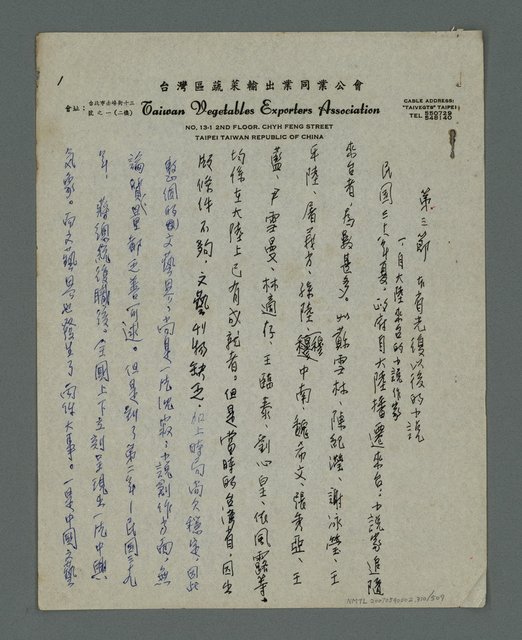 1
台灣區蔬菜輸出業同業公會
會址：台北市赤峰街十三號之一(二樓)
Taiwan Vegetables Exporters Association
CABLE ADDRESS:
"TAIVEGTS" TAIPEI
TEL 550729
NO. 13-1 2ND FLOOR. CHYH FENG STREET
TAIPEI TAIWAN REPUBLIC OF CHINA
第三節 本省光復以後的小說
一、自大陸來台的小說作家
民國三十八年夏，政府自大陸播遷來台，小說家追隨
來台者，為數甚多。如蘇雪林、陳紀瀅、謝冰瑩、王
平陵、孫陵、穆中南、魏希文、張秀亞、王
藍、尹雪曼、林適存、王臨泰、劉心皇、依風露等。
均係在大陸上已有成就者。但是當時的台灣省，因出
版條件不夠，文藝刊物缺乏，加上時局尚欠穩定，因此
整個的文藝界，尚是一片沈寂，小說創作方面，無
論質量都乏善可述。但是到了第二年—民國三九
年，蔣總統復職後，全國上下立刻呈現出一片中興
氣象。而文藝界也發生了兩件大事。一是中國文藝
NMTL 20070540002 310/509